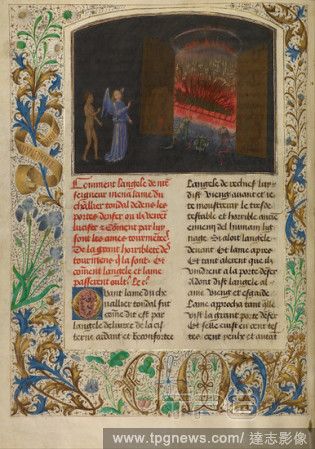 Comment langele de nre
seigneur mena lame du
chevallier tondal dedens les
portes denfer ou ilz virent
lucifer et comment par luy
sont les ames tourmentees
De la grant horriblete de
tourmens qui la sont. Et
coment langele et lame
passerent oultre.
Quant lame du che
vallier tondal fut
come dit est par
langele deliuree de la cis
terne ardant et Reconfortee
Langele de rechief luy
dist Vieng auant et ie te
monstreray le tresde
testable et horrible anchien
ennemy del humain lig
nage Si aloit langele
deuant Et lame apres
Et tant alerent que ilz
vindrent a la porte denfer
Adont dist langele al
ame vieng et esgarde
Lame approcha tant quelle
vist la grant porte denfer
Et selle euist eu cent tes
tes cent yeulx et autant
www.tpgnews.com/達志影像